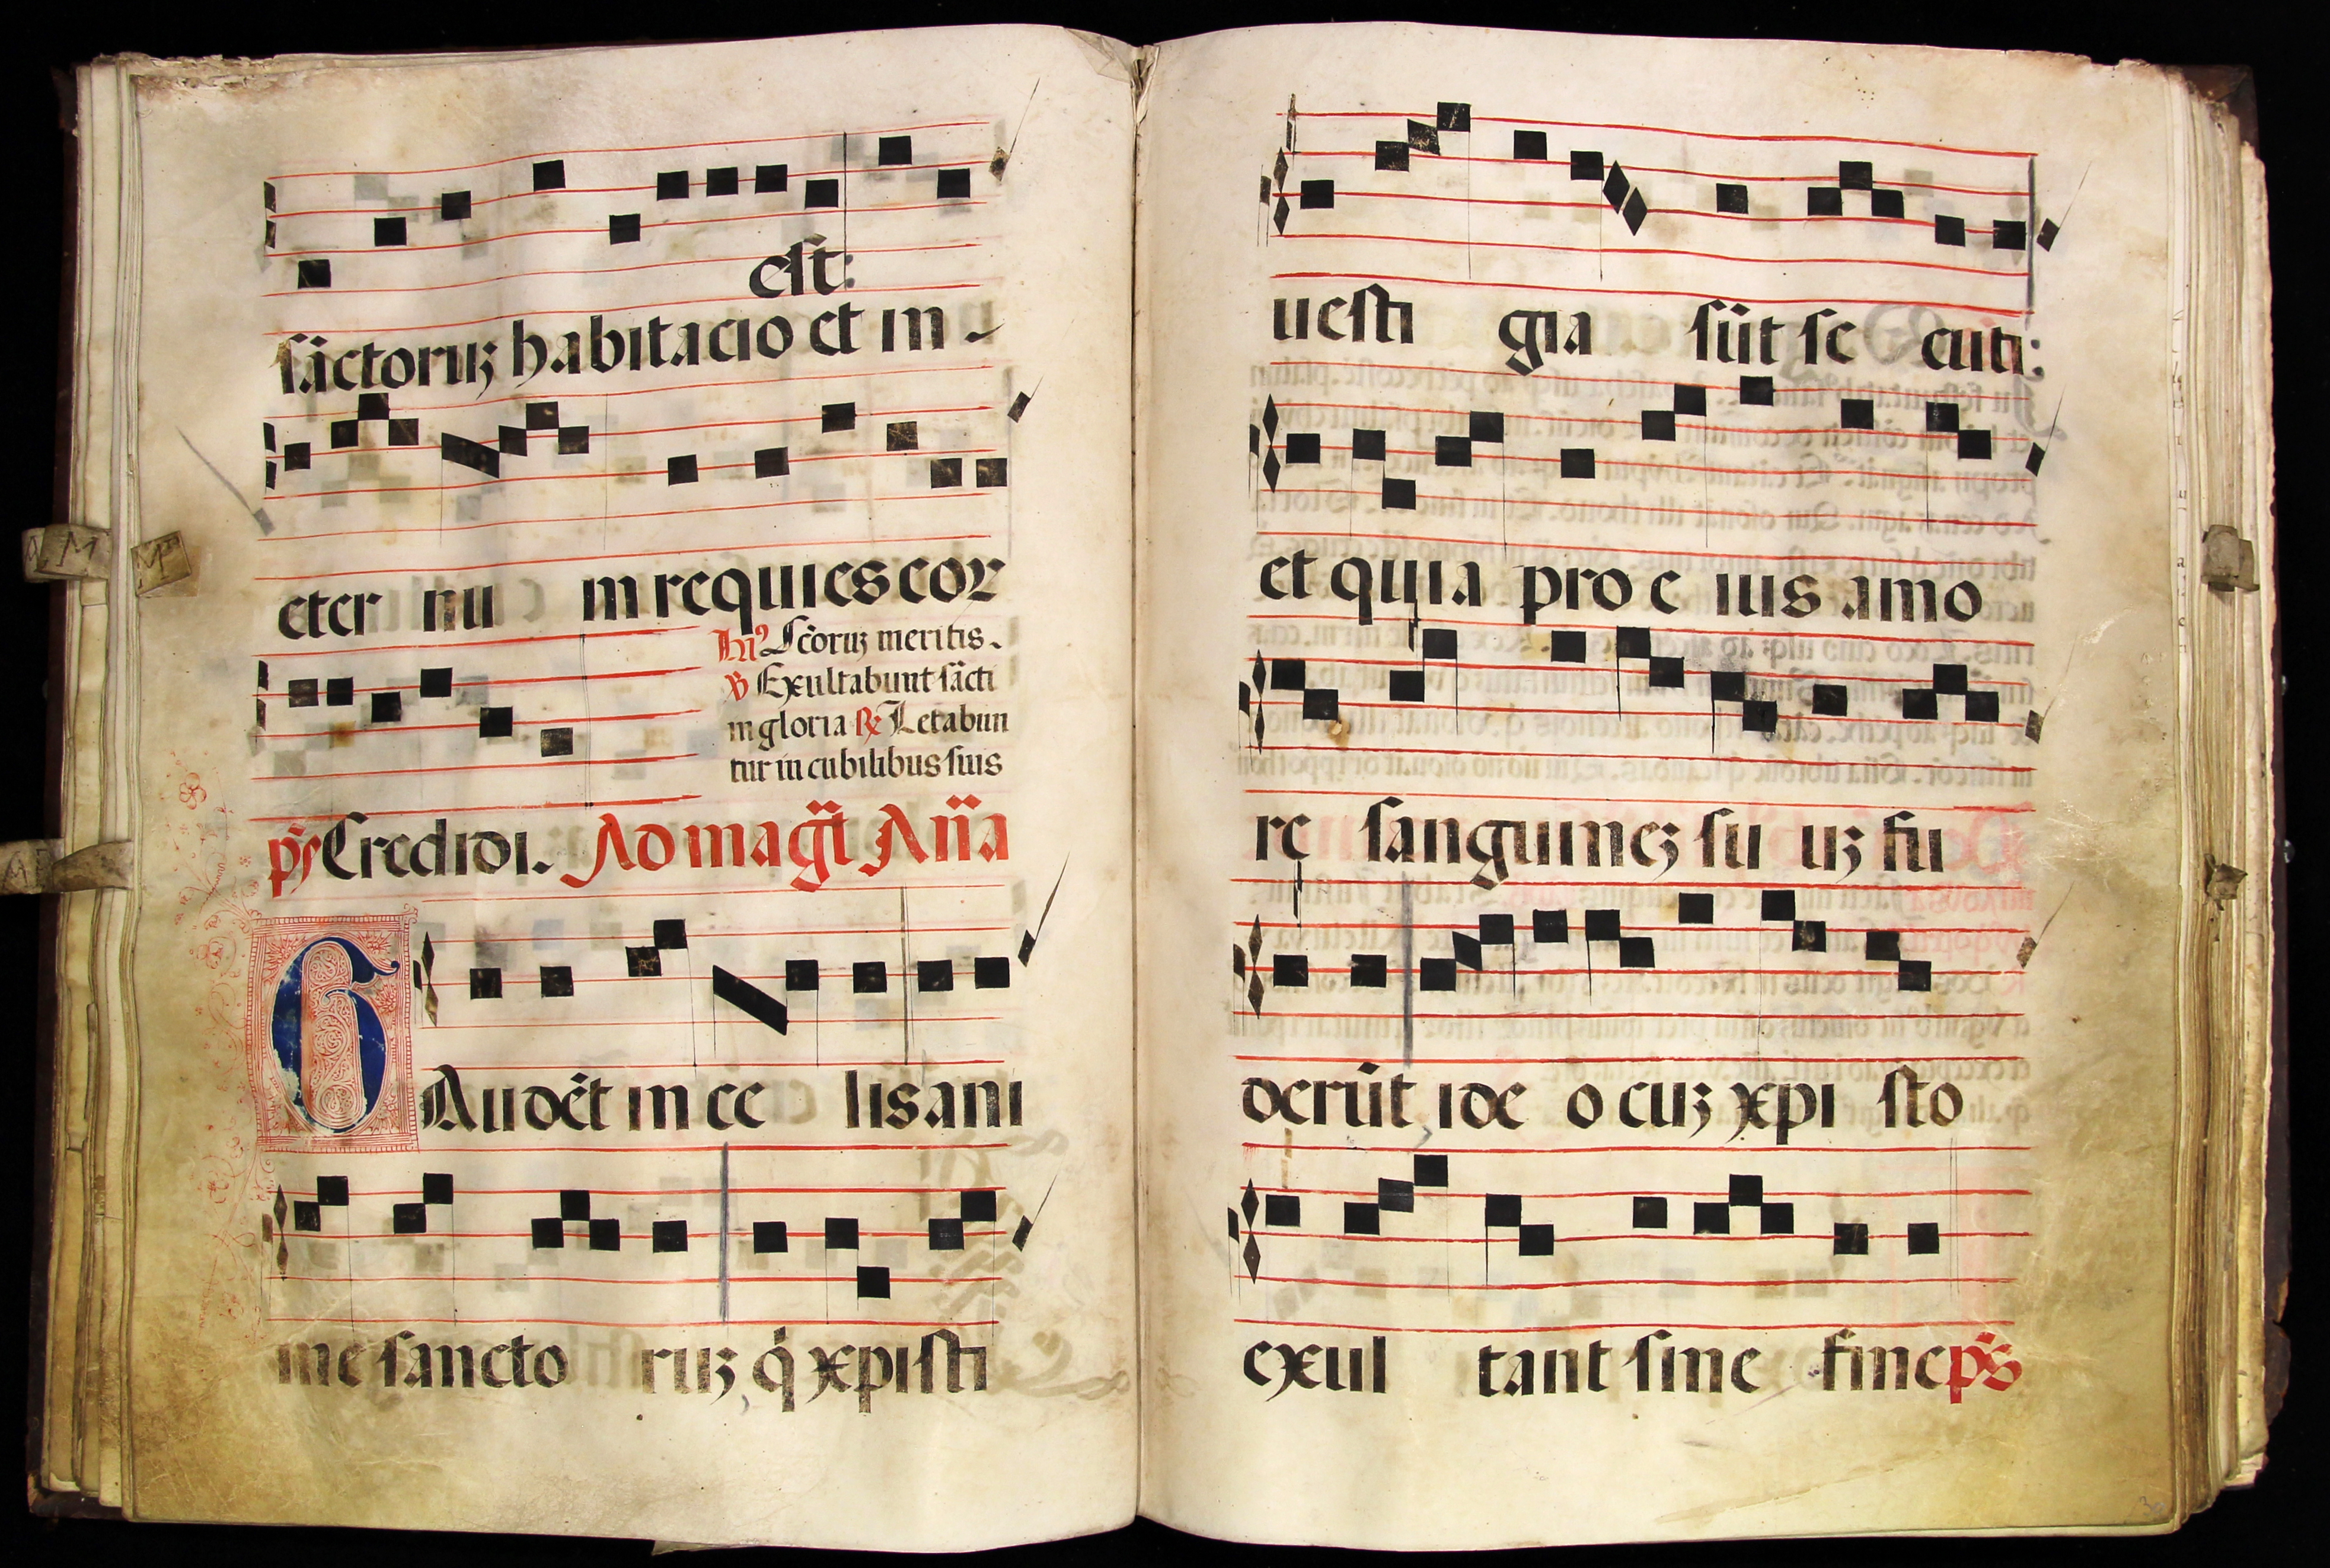 est:
sãctoruꝫ habitacio et in-
eter nu m requies eor
hỹꝰ Scõruꝫ meritis.
℣ Exultabunt sãcti
in gloria ℟ Letabun
tur in cubilibus suis
p̃s Credidi. Ad magt̃ Añã
GAudẽt in ce lis ani
me sancto ruꝫ q̇ xp̱isti
uesti gia sũt se cuti:
et quia pro e ius amo
re sanguineꝫ su uꝫ fu
derũt ide o cuꝫ xpi sto
exul tant sine fine p̃s
M
M